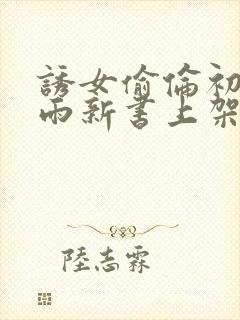 誘女偷倫初
雨新書上架
陸志霖